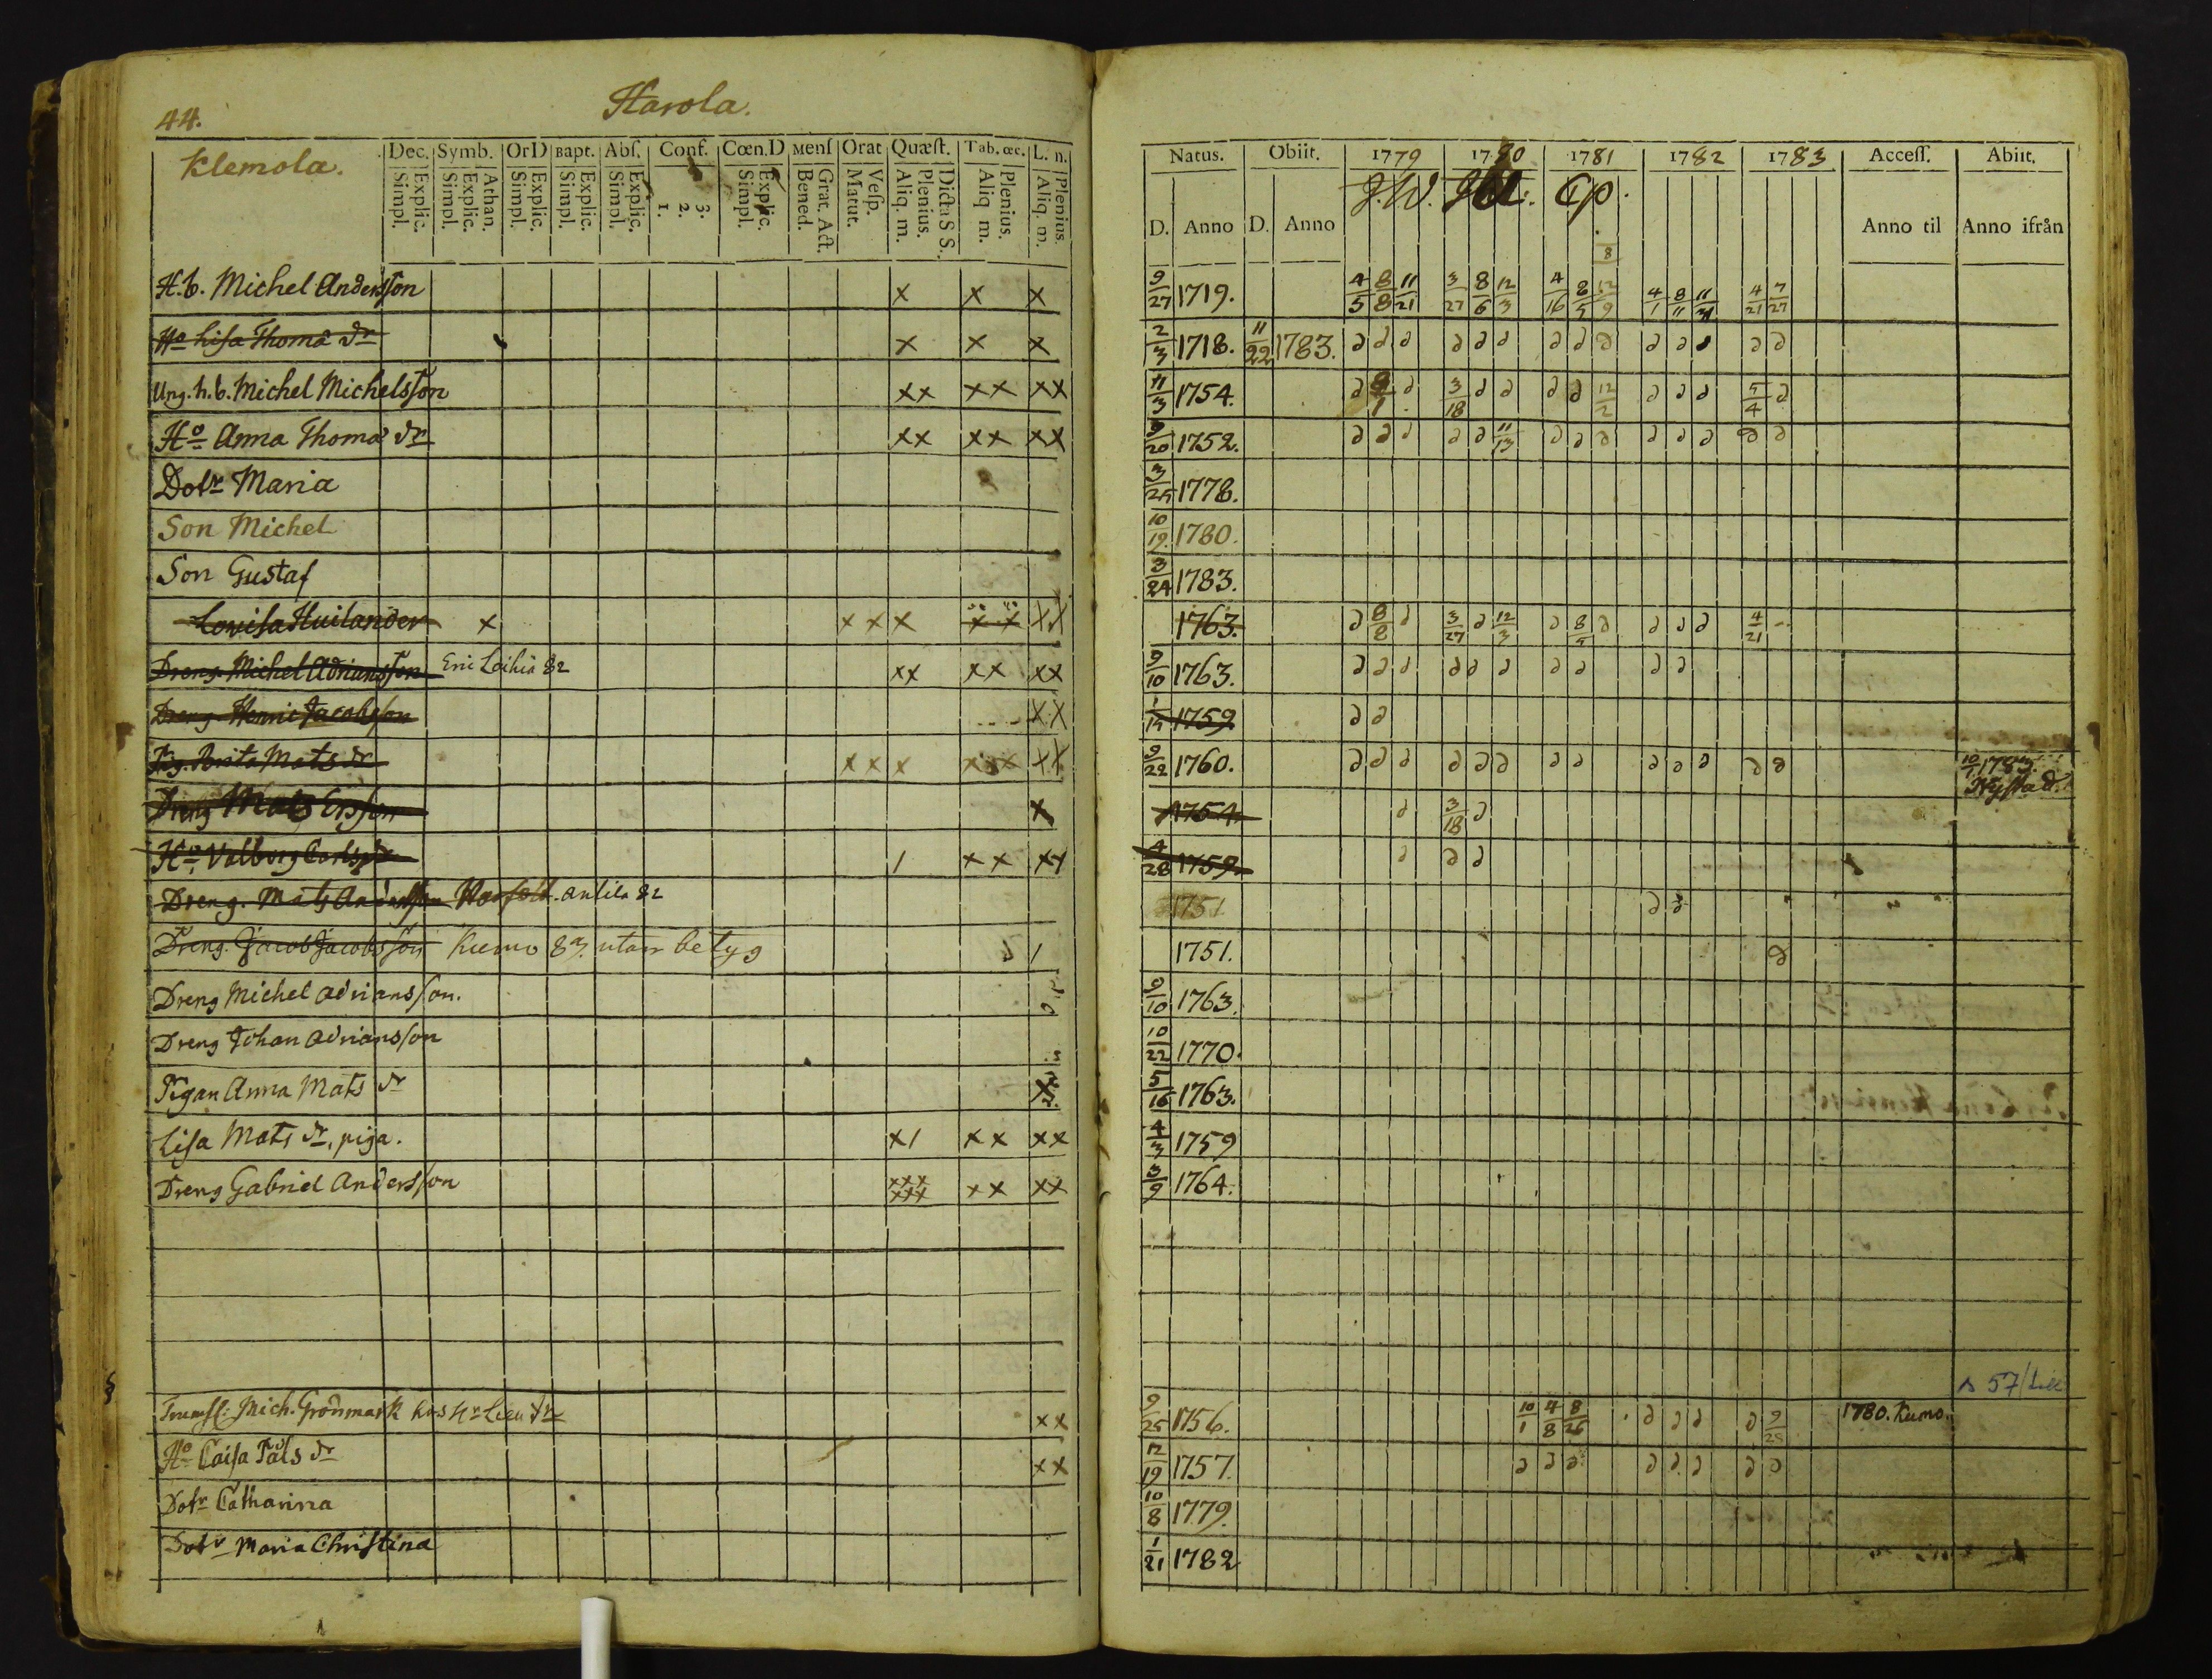 44.
Harola.
Klemola.
Dec. Symb. OrD Bapt. Abſ. Conf. Cœn.D Menſ Orat Quæſt. Tab. œc. L. n.
Explic. Simpl. Athan. Explic. Simpl. Explic. Simpl. Explic. Simpl. Explic. Simpl. 3. 2. 1. Explic. Simpl. Grat. Act. Bened. Veſp. Matut. Dicta S S. Plenius. Aliq. m. Plenius. Aliq m. Plenius. Aliq. m.
Natus. Obiit. 1779 1780 1781 1782 1783 Acceſſ. Abiit.
D. Anno D. Anno Anno til Anno ifrån
H.b. Michel Andersſon x x x 9/27 1719. 4/5 8/8 11/21 3/27 8/6 12/3 4/16 8/5 12/9 4/1 8/11 4/21 7/27
Ho Liſa Thomæ dr x x x 2/3 1718. 11/22 1783.
Ung. h.b. Michel Michelsſon xx xx xx 11/3 1754. 8/1 3/18 12/2 5/4
Ho Anna Thomæ dr xx xx xx 9/20 1752. 11/13
Dotr Maria 3/25 1778.
Son Michel 10/19. 1780.
Son Gustaf 3/24 1783.
Loviſa Huilander x x x x x x XX 1763. 8/8 3/27 12/3 8/5 4/21
Dreng Michel Adriansſon Eni Leihia 82 xx xx xx 9/10 1763.
Dreng Henric Jacobsſon XX 1/15 1759
Pig. Brita Mats dr x x x xxx XX 9/22 1760. 10/1 1783. Nystad.
Dreng Mats Ersſon x 1754. 3/18
Ho Valborg Carls dr / x x xx 4/28 1759.
Dreng. Mats Andersſon antila 82 1751
Dreng. Jacob Jacobsſon Kumo 83. utan betyg 1751.
Dreng Michel Adriansſon. 9/10 1763.
Dreng Johan Adriansſon 10/22 1770.
Pigan Anna Mats dr 5/16 1763.
Liſa Mats dr, piga. x/ x x xx 4/3 1759
Dreng Gabriel Andersſon xxx xxx x x xx 3/9 1764.
s 57
Trumſl: Mich. Grönmark hos Hr Lieut xx 9/25 1756. 10/1 4/8 8/26 9/28 1780. Kumo.
Ho Caiſa Påls dr xx 12/19 1757.
Dotr Catharina 10/8 1779.
Dotr Maria Chriſtina 1/21 1782